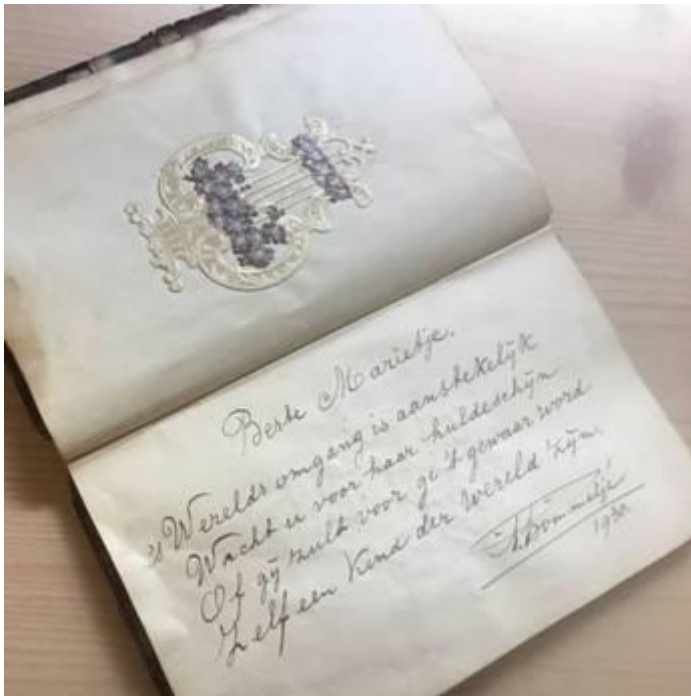 Beste Marietje.
's Werelds omgang is aanstekelijk
Wacht u voor haar huldeschijn
Of gij zult voor ge 't gewaar word
Zelf een Kind der wereld zijn.
1930.